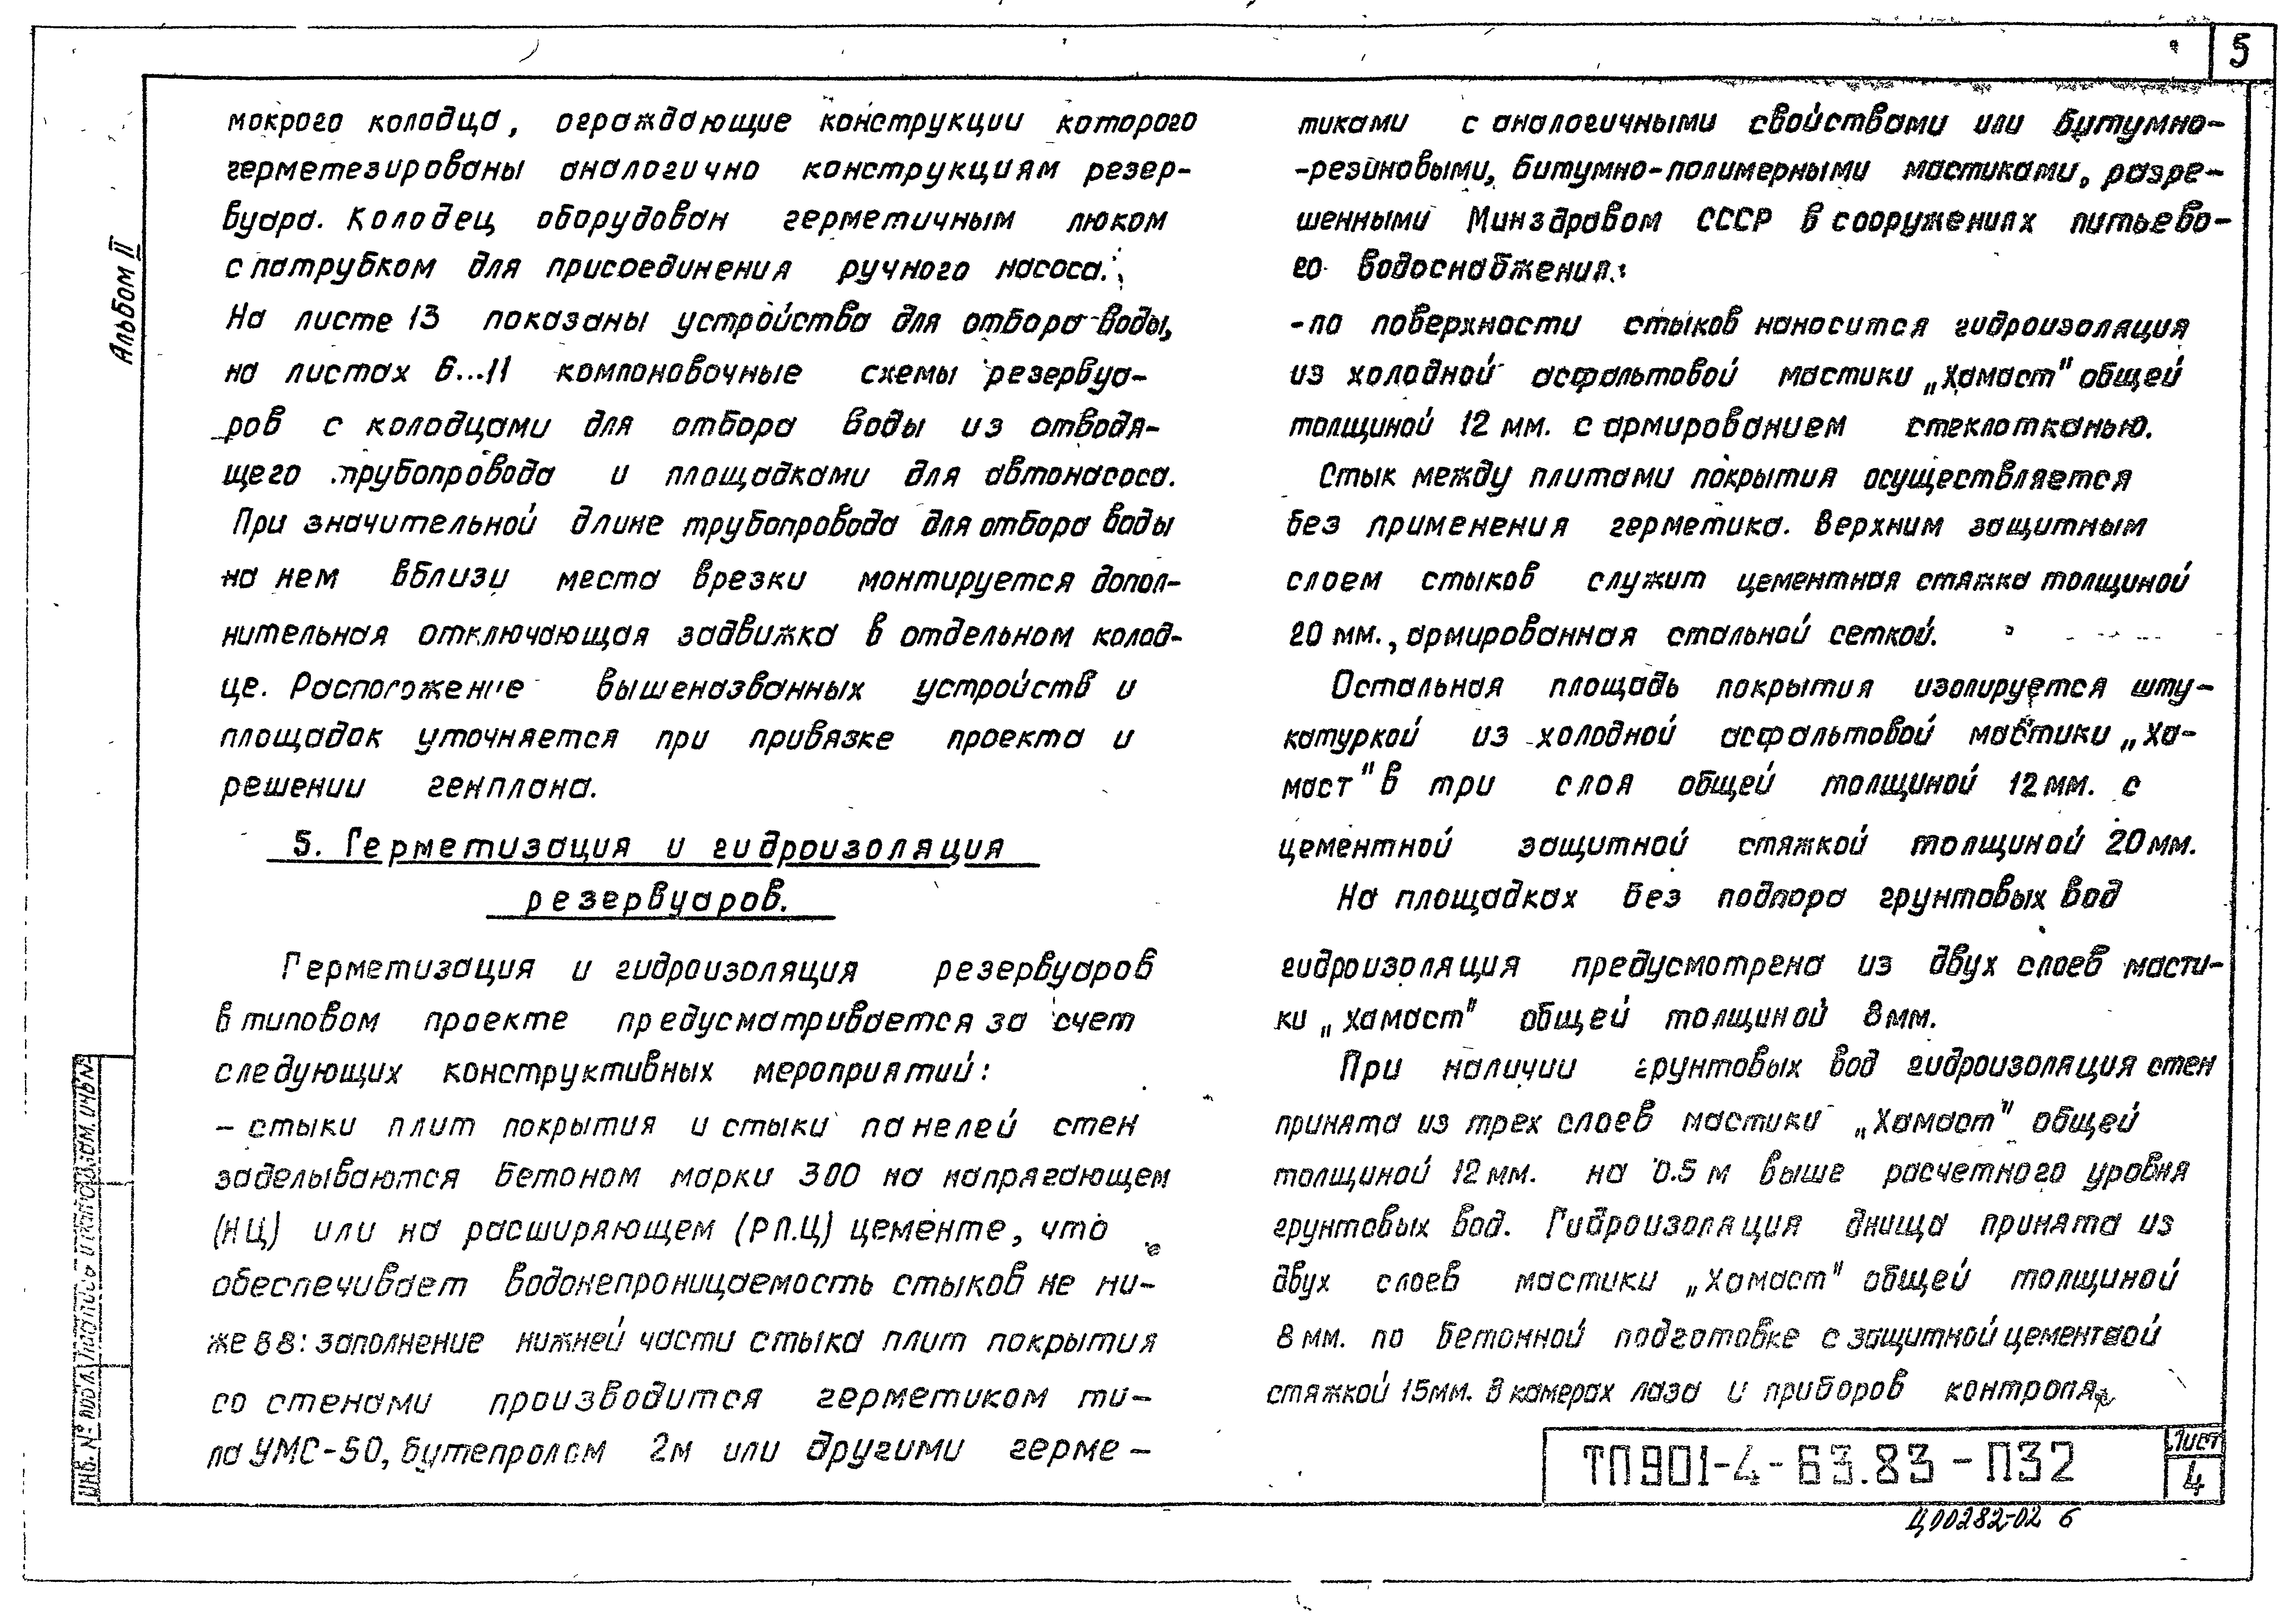 5
Альбом II
мокрого колодца, ограждающие конструкции которого
герметезированы аналогично конструкциям резер-
вуара. Колодец оборудован герметичным люком
с патрубком для присоединения ручного насоса.
На листе 13 показаны устройства для отбора воды,
на листах 6...11 компоновочные схемы резервуа-
ров с колодцами для отбора воды из отводя-
щего трубопровода и площадками для автонасоса.
При значительной длине трубопровода для отбора воды
на нем вблизи места врезки монтируется допол-
нительная отключающая задвижка в отдельном колод-
це. Расположение вышеназванных устройств и
площадок уточняется при привязке проекта и
решении генплана.
5. Герметизация и гидроизоляция
резервуаров.
Герметизация и гидроизоляция резервуаров
в типовом проекте предусматривается за счет
следующих конструктивных мероприятий:
- стыки плит покрытия и стыки панелей стен
заделываются бетоном марки 300 на напрягающем
(НЦ) или на расширяющем (РПЦ) цементе, что
обеспечивает водонепроницаемость стыков не ни-
же В8: заполнение нижней части стыка плит покрытия
со стенами производится герметиком ти-
па УМС-50, бутепролом 2м или другими герме-
тиками с аналогичными свойствами или битумно-
-резиновыми, битумно-полимерными мастиками, разре-
шенными Минздравом СССР в сооружениях питьево-
го водоснабжения:
-по поверхности стыков наносится гидроизоляция
из холодной асфальтовой мастики „Хамаст" общей
толщиной 12 мм. с армированием стеклотканью.
Стык между плитами покрытия осуществляется
без применения герметика. Верхним защитным
слоем стыков служит цементная стяжка толщиной
20 мм., армированная стальной сеткой.
Остальная площадь покрытия изолируется шту-
катуркой из холодной асфальтовой мастики „Ха-
маст" в три слоя общей толщиной 12 мм. с
цементной защитной стяжкой толщиной 20 мм.
На площадках без подпора грунтовых вод
гидроизоляция предусмотрена из двух слоев масти-
ки „Хамаст" общей толщиной 8 мм.
При наличии грунтовых вод гидроизоляция стен
принята из трех слоев мастики „Хамаст" общей
толщиной 12 мм. на 0.5 м выше расчетного уровня
грунтовых вод. Гидроизоляция днища принята из
двух слоев мастики „Хамаст" общей толщиной
8 мм. по бетонной подготовке с защитной цементной
стяжкой 15 мм. В камерах лаза и приборов контроля
Инв. № подл. Подпись и дата Взам. инв №
ТП 901-4-63.83-ПЗ2
Лист
4
Ц00282-02 6